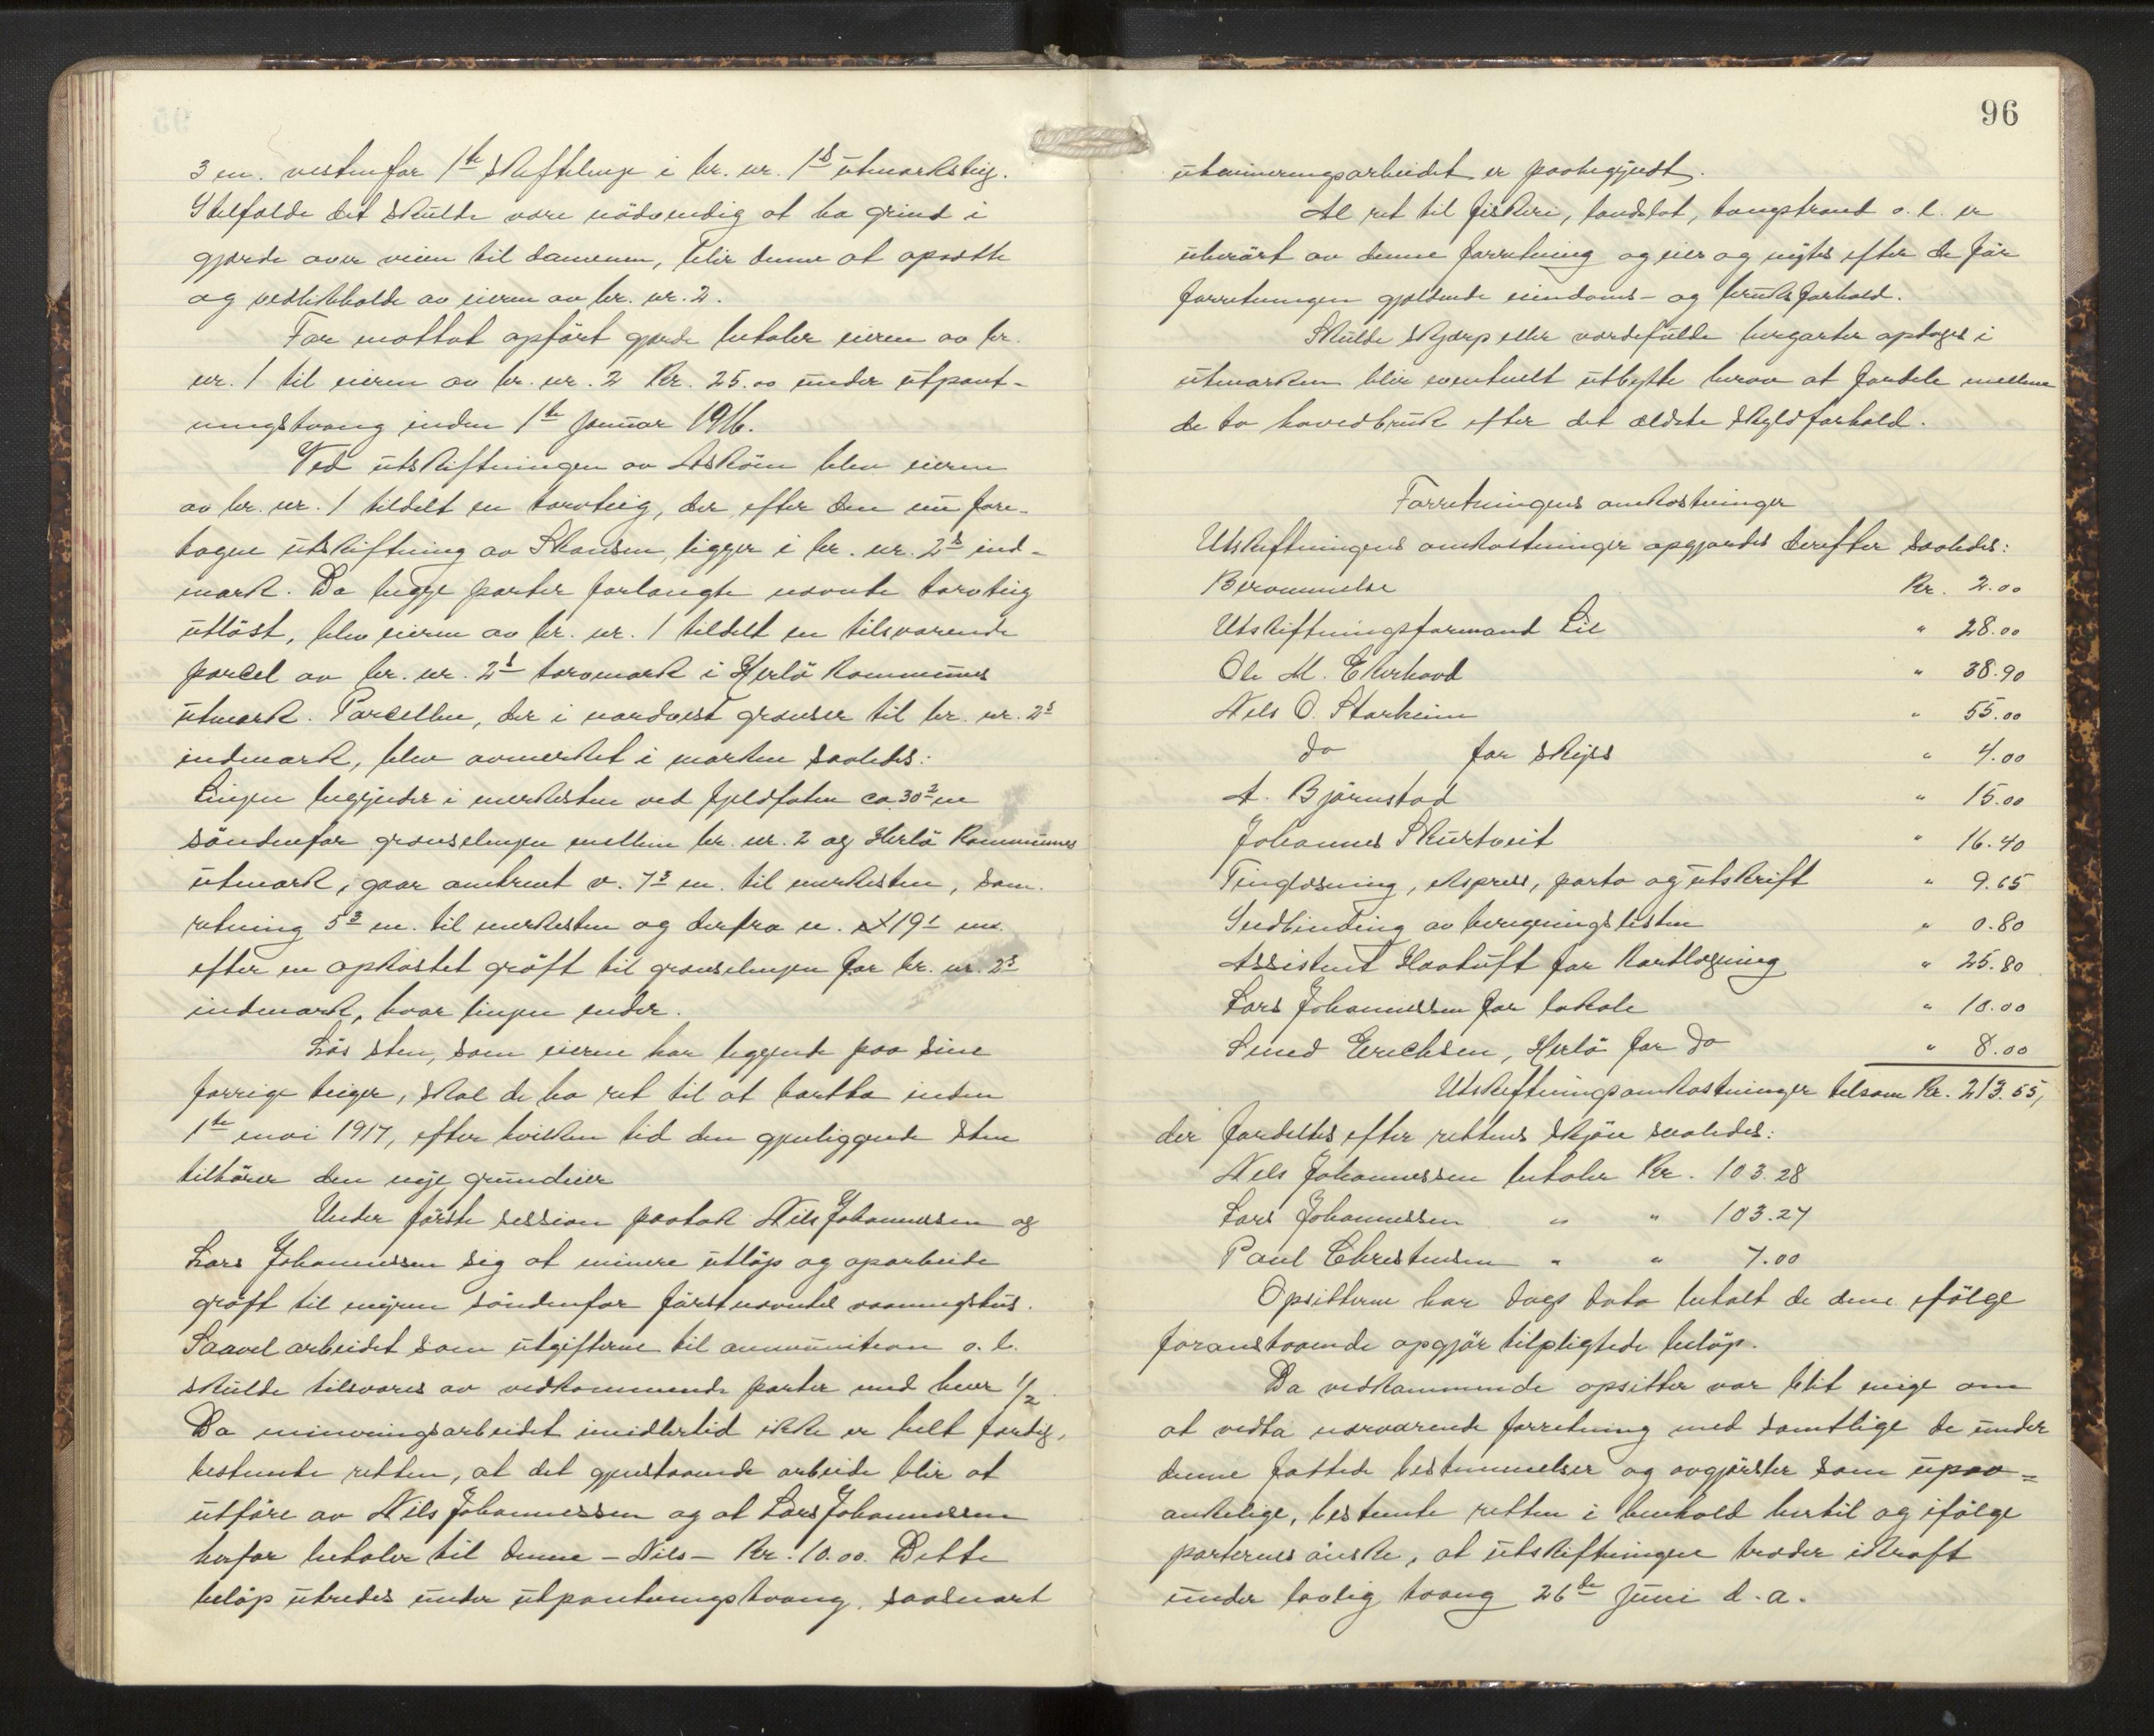 3 m. vestenfor 1ste skiftelinje i br. nr. 1s utmarksteig.
I tilfælde det skulde være nödvendig at ha grind i
gjærde over veien til dammen, blir denne at opsætte
og vedlikeholde av eieren av br. nr. 2.
For mottat opfört gjærde betaler eieren av br.
nr. 1 til eieren av br. nr. 2 Kr. 25.00 under utpant-
ningstvang inden 1ste januar 1916.
Ved utskiftningen av Asköen blev eieren
av br. nr. 1 tildelt en torvteig, der efter den nu fore-
tagne utskiftning av Skansen, ligger i br. nr. 2s ind-
mark. Da begge parter forlangte nævnte torvteig
utlöst, blev eieren av br. nr. 1 tildelt en tilsvarende
parcel av br. nr. 2s torvmark i Herlö kommunes
utmark. Parcellen, der i nordvest grænser til br. nr. 2s
indmark, blev avmerket i marken saaledes:
Linjen begynder i merkesten ved fjeldfoten ca 30² m
söndenfor grænselinjen mellem br. nr. 2 og Herlö kommunes
utmark, gaar omtrent v. 7³ m. til merkesten, sam.
retning 5³ m. til merkesten og derfra n. 19¹ m.
efter en opkastet gröft til grænselinjen for br. nr. 2s
indmark, hvor linjen ender.
Lös sten, som eierne har liggende paa sine
forrige teiger, skal de ha ret til at bortta inden
1ste mai 1917, efter hvilken tid den gjenliggende sten
tilhörer den nye grundeier
Under förste session paatok Nils Johannessen og
Lars Johannessen sig at minere utlöp og oparbeide
gröft til myren söndenfor förstnævntes vaaningshus.
Saavel arbeidet som utgifterne til ammunition o. l.
skulde tilsvares av vedkommende parter med hver 1/2.
Da mineringsarbeidet imidlertid ikke er helt færdig,
bestemte retten, at det gjenstaaende arbeide blir at
utföre av Nils Johannessen og at Lars Johannessen
herfor betaler til denne - Nils - Kr. 10.00. Dette
belöp utredes under utpantningstvang, saasnart
96
utmineringsarbeidet er paabegyndt.
Al ret til fiskeri, landslot, tangstrand o. l. er
uberört av denne forretning og eies og nytes efter de för
forretningen gjældende eiendoms- og bruksforhold.
Skulde skjærp eller værdifulde bergarter optages i
utmarken blir eventuelt utbytte herav at fordele mellem
de to hovedbruk efter det ældste skyldforhold.
Forretningens omkostninger
Utskiftningens omkostninger opgjordes derefter saaledes:
Berammelse Kr. 2.00
Utskiftningsformand Lie " 28.00
Ole M. Ekerhovd " 38.90
Nils O. Storheim " 55.00
do for skyss " 4.00
A. Björnstad " 15.00
Johannes Skurtveit " 16.40
Tinglæsning, ekspres, porto og utskrift " 9.65
Indbinding av beregningslisten " 0.80
Assistent Haatuft for kartlægning " 25.80
Lars Johannessen for lokale " 10.00
Smed Erichsen, Herlö for do " 8.00
Utskiftningsomkostninger tilsam Kr. 213.55,
der fordeltes efter rettens skjön saaledes:
Nils Johannessen betaler Kr. 103.28
Lars Johannessen " " 103.27
Paul Christensen " " 7.00
Opsitterne har dags dato betalt de dem ifölge
foranstaaende opgjör tilpligtede belöp.
Da vedkommende opsitter var blit enige om
at vedta nærværende forretning med samtlige de under
denne fattede bestemmelser og avgjörelser som upaa-
ankelige, bestemte retten i henhold hertil og ifölge
parternes önske, at utskiftningen træder ikraft
under lovlig tvang 26de juni d. a.